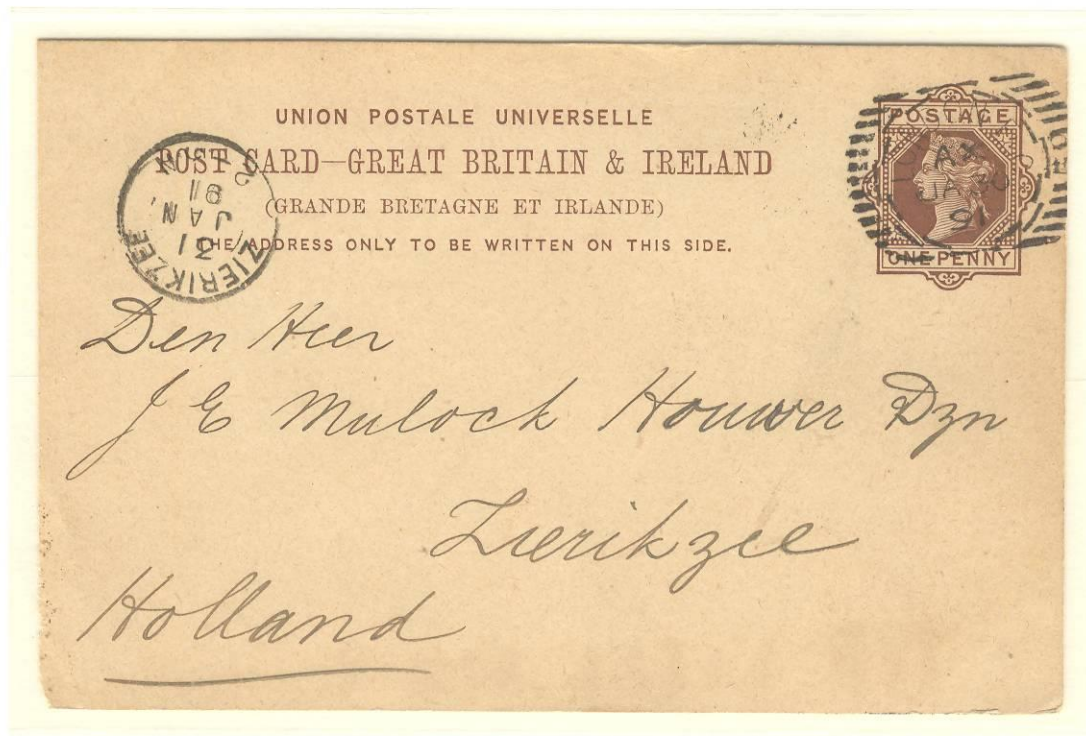 UNION POSTALE UNIVERSELLE
POST CARD—GREAT BRITAIN & IRELAND
(GRANDE BRETAGNE ET IRLANDE)
THE ADDRESS ONLY TO BE WRITTEN ON THIS SIDE.
POSTAGE
ONE PENNY
JA 30
91
ZIERIKZEE
31
JAN
91
Den Heer
J E Mulock Houwer Dzn
Zierikzee
Holland